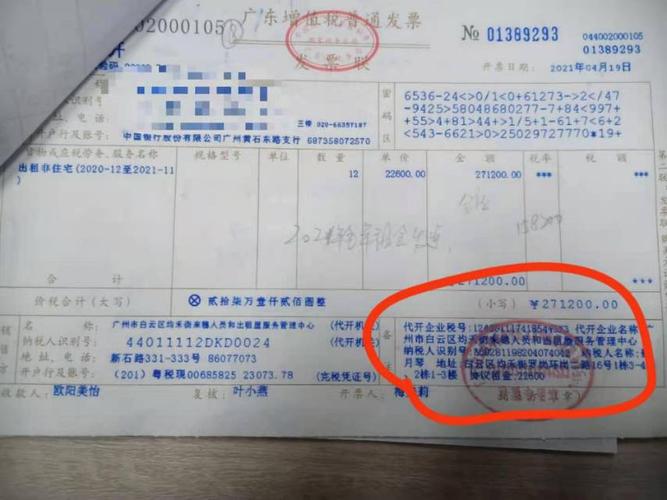 02000105
广东增值税普通发票
发票联
№ 01389293
044002000105
01389293
开票日期：2021年04月19日
密码区
6536-24<>0/1<0+61273->2</47
-9425>58048680277-7+84<997+
+55>4+81>44+>1/5+1-61+7<6+2
<543-6621>0>25029727770*19+
地址、电话
三楼 020-66357187
开户行及账号：
中国银行股份有限公司广州黄石东路支行 687358072570
货物或应税劳务、服务名称 规格型号 单位 数量 单价 金额 税率 税额
出租非住宅(2020-12至2021-11
)
12 22600.00 271200.00 ***  ***
158200
合计 ¥271200.00 ***
价税合计(大写) ⊗贰拾柒万壹仟贰佰圆整 (小写) ¥271200.00
广州市白云区均禾街来穗人员和出租屋服务管理中心 (代开机关)
纳税人识别号：44011112DKD0024
地址、电话：新石路331-333号 86077073
(201) 粤税现00685825 23073.78 (完税凭证号)
备
代开企业名称:广
州市白云区均禾街来穗人员和出租屋服务管理中心
纳税人识别号: 纳税人名称:
月琴 地址:白云区均禾街 二路16号1栋3-4
2栋1-3楼 协议租金:22600
收款人：欧阳美怡 复核：叶小燕 开票人：